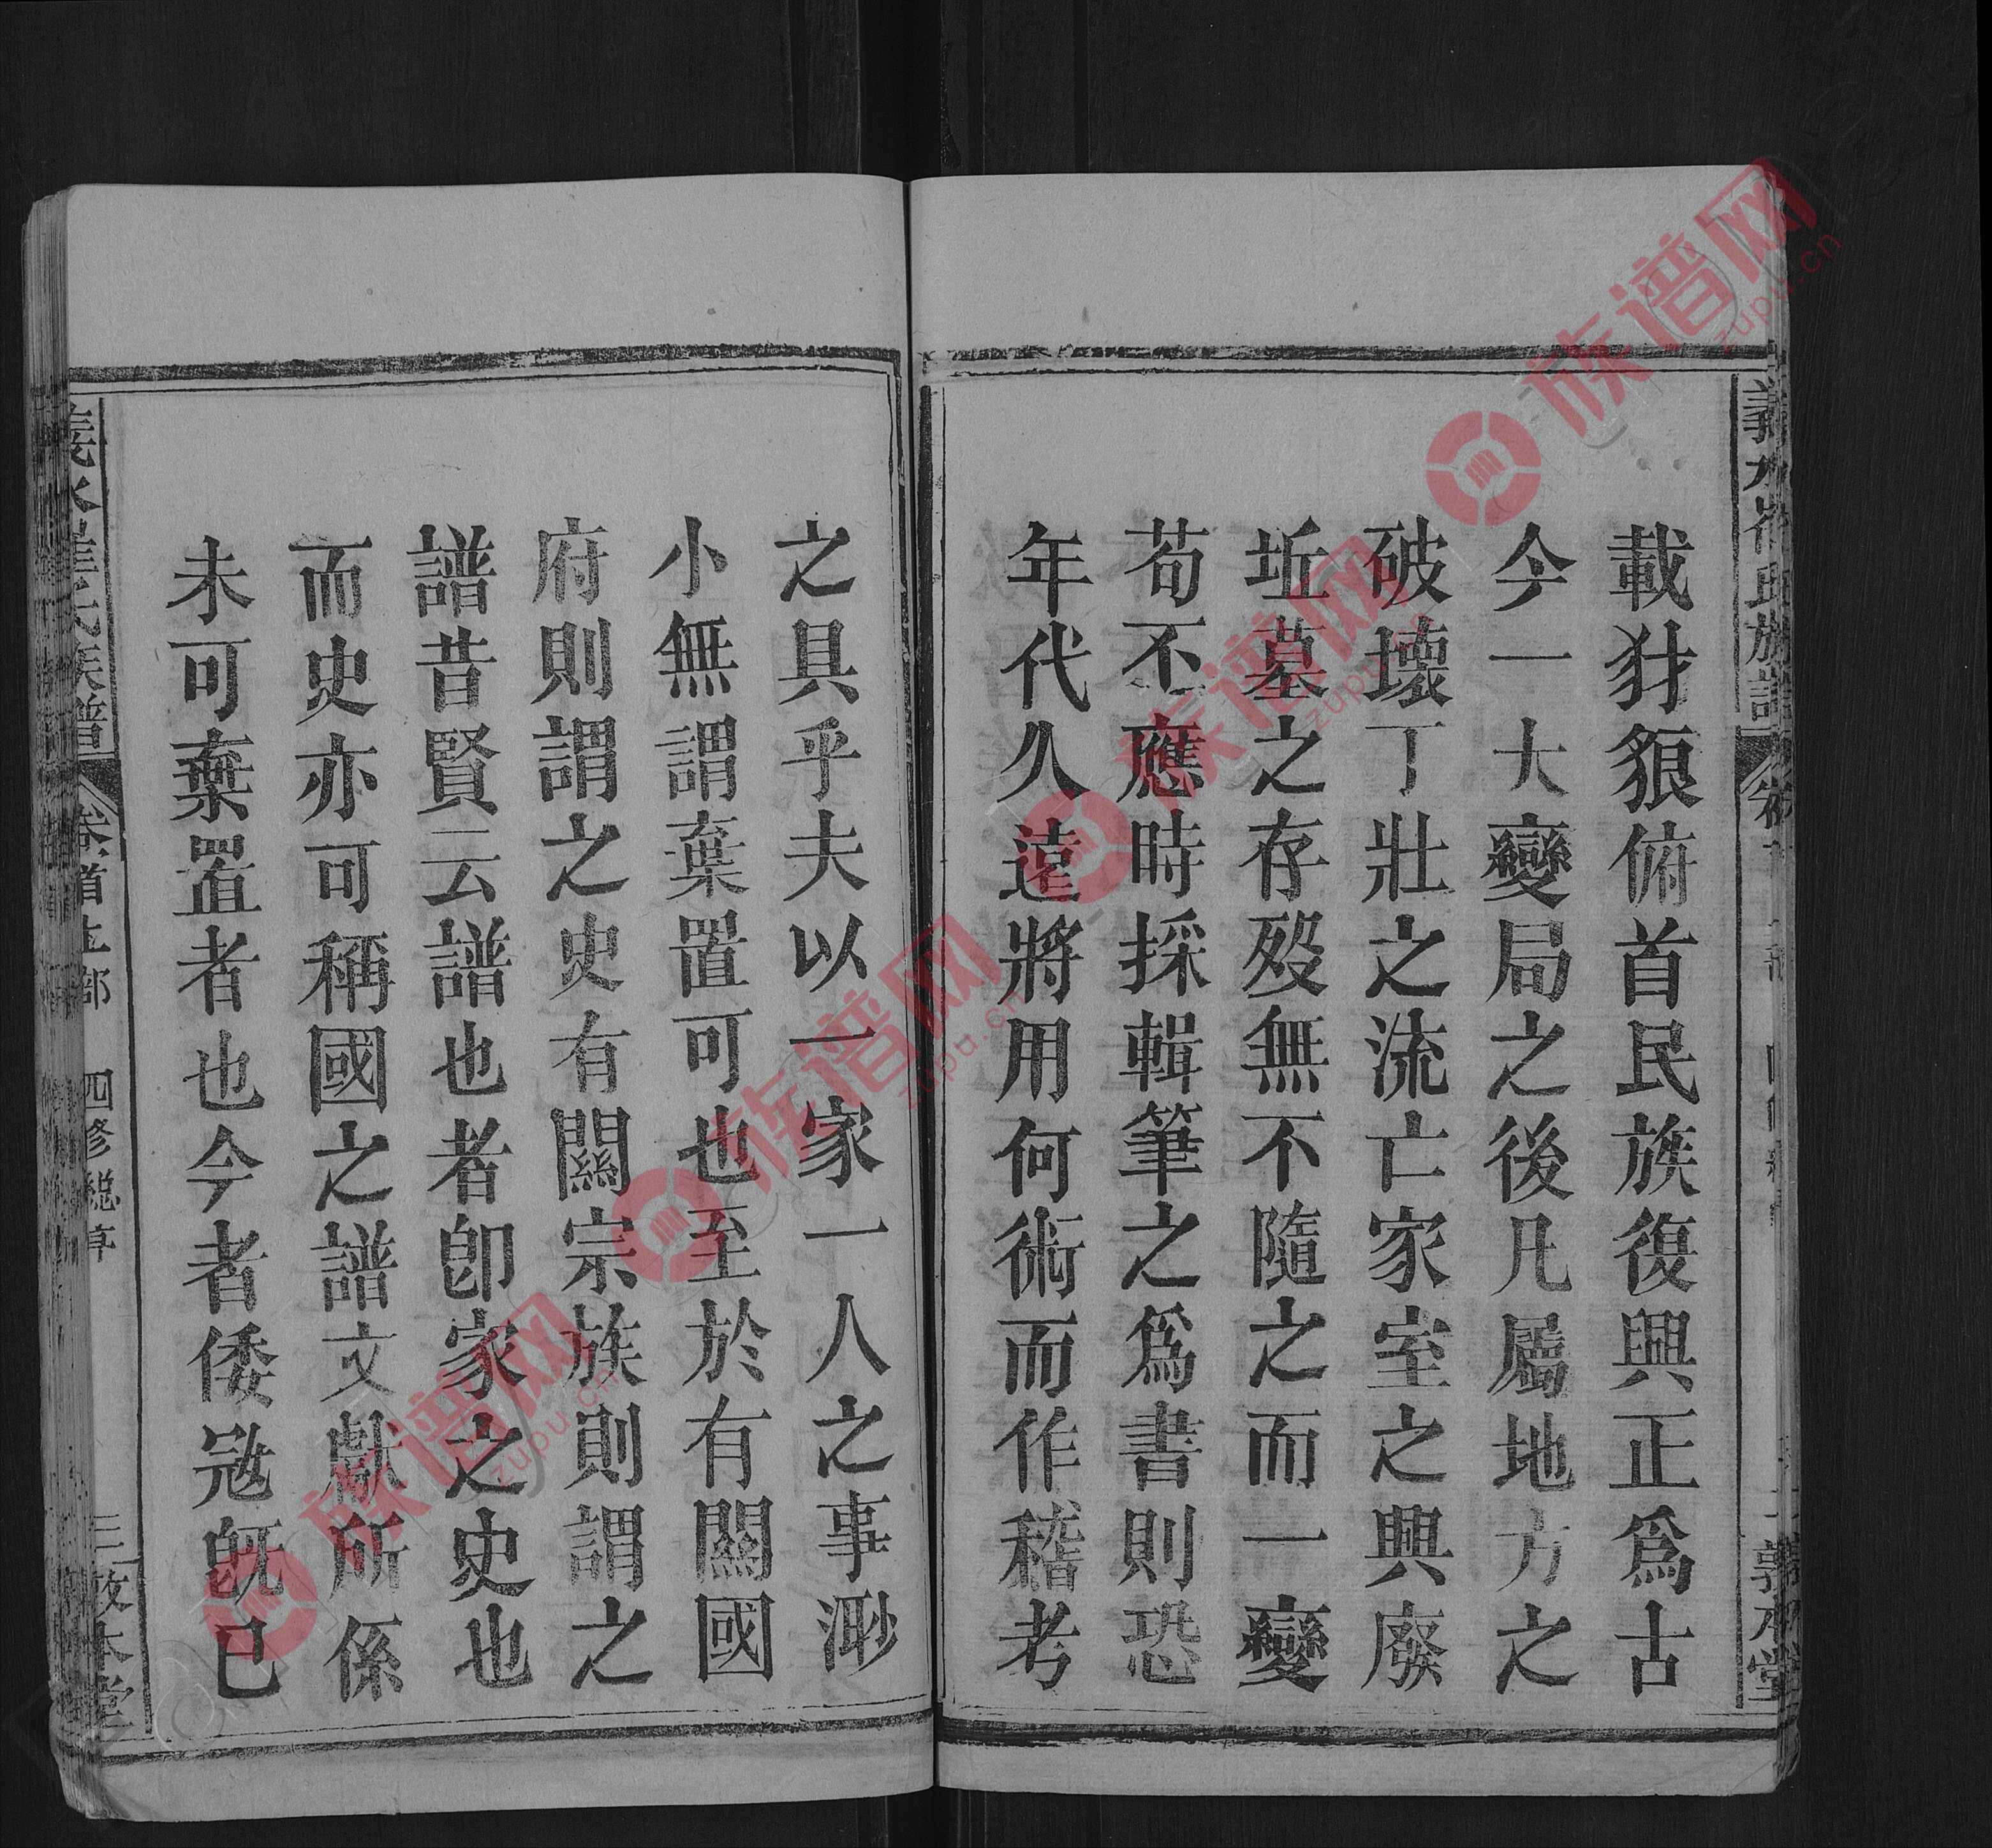 載豺狼俯首民族復興正爲古
今一大變局之後凡屬地方之
破壞丁壯之流亡家室之興廢
坵墓之存殁無不隨之而一變
苟不應時採輯筆之爲書則恐
年代久遠將用何術而作稽考
之具乎夫以一家一人之事渺
小無謂棄置可也至於有關國
府則謂之史有關宗族則謂之
譜昔賢云譜也者卽家之史也
而史亦可稱國之譜文獻所係
未可棄置者也今者倭冦旣已
義水崔氏族譜
卷首上部 四修總序
三 敦本堂
族谱网
zupu.cn
族谱网
zupu.cn
族谱网
zupu.cn
族谱网
zupu.cn